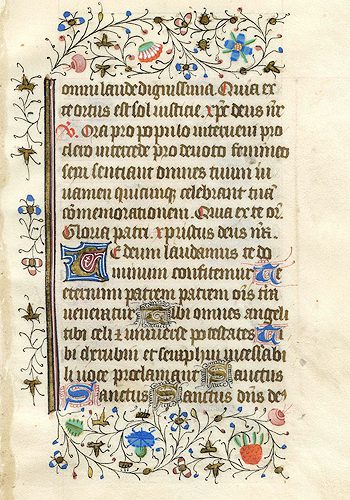 omni laude dignissima. Quia ex
te ortus est sol iusticie. xp̄c deus nr̄
V. Ora pro populo interveni pro
clero intercede pro devoto femineo
sexu sentiant omnes tuum iu
uamen quicumq celebrant tuā
cōmemorationem. Quia ex te or.
Gloria patri. xpristus deus nr̄.
Te deum laudamus te do
minum confitemur Te
eternum patrem omīs tra
ueneratur Tibi omnes angeli
tibi celi et universe potestates Ti
bi cherubin et seraphin incessabi
li uoce proclamant Sanctus
Sanctus Sanctus dn̄s de